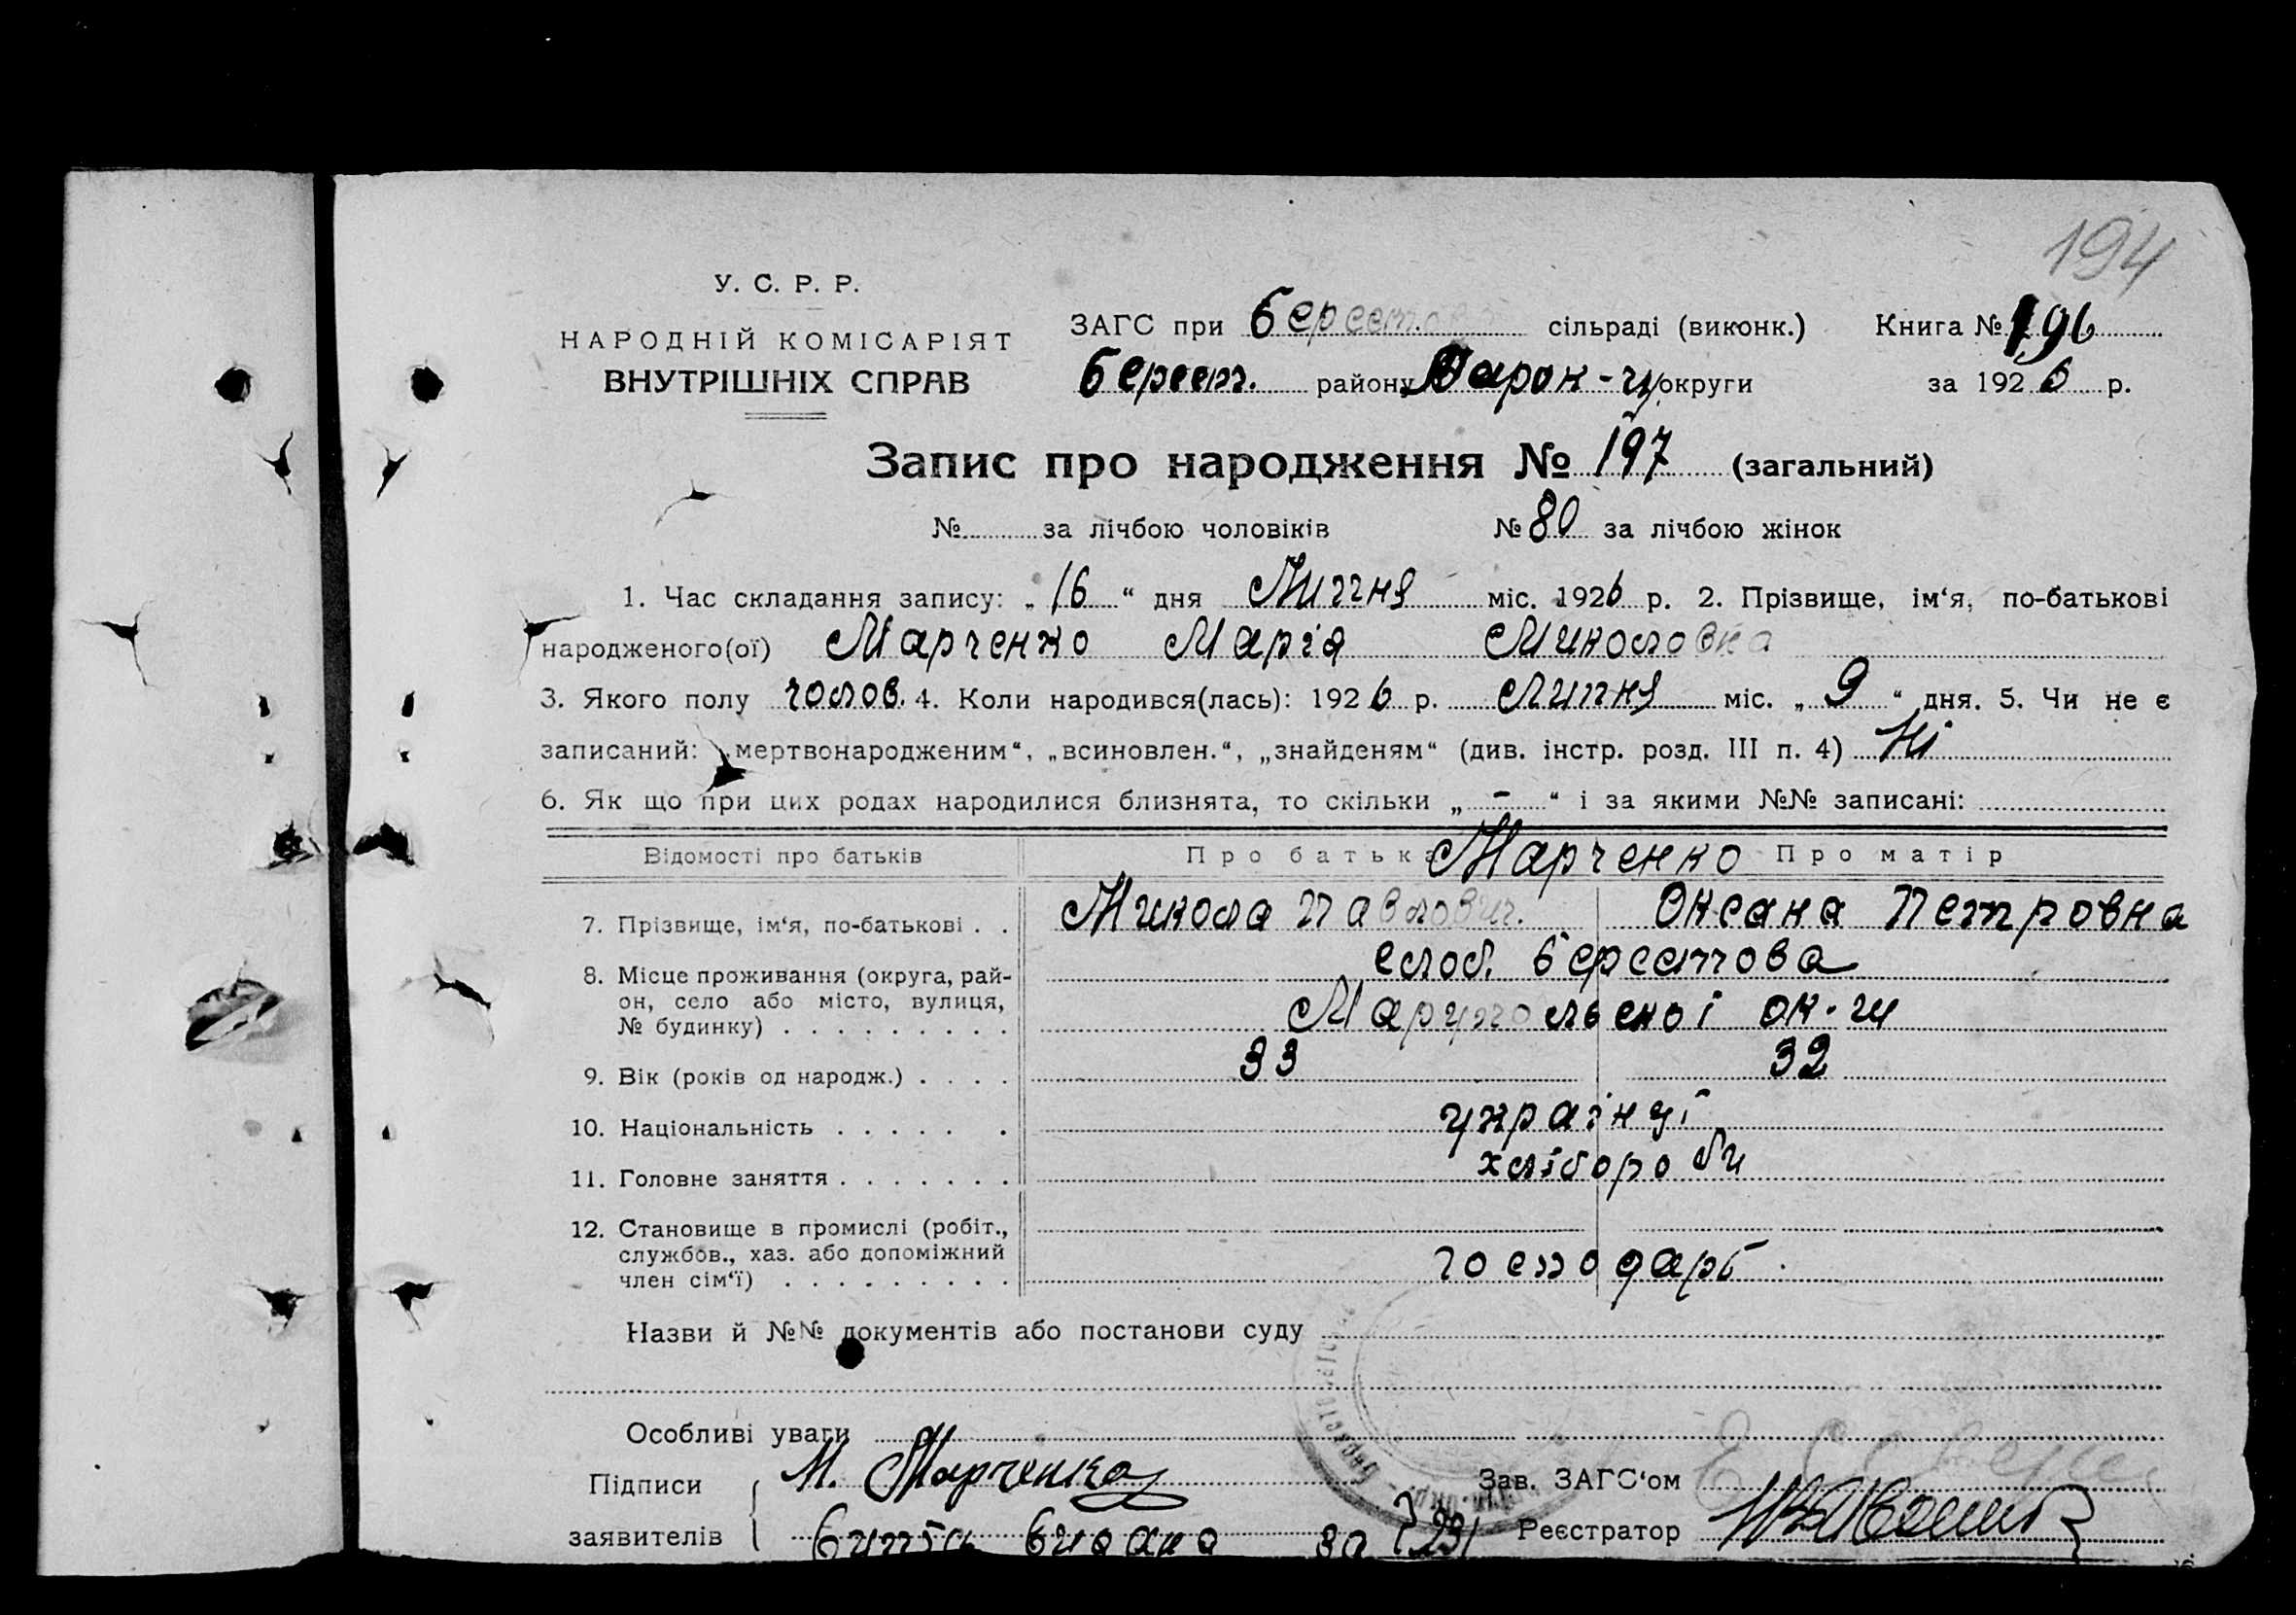 194
У. С. Р. Р.
НАРОДНІЙ КОМІСАРІЯТ
ВНУТРІШНІХ СПРАВ
ЗАГС при Берестова сільраді (виконк.) Книга № 196
Берест. району округи за 1926 р.
Запис про народження № 197 (загальний)
№ за лічбою чоловіків № 80 за лічбою жінок
1. Час складання запису: „16“ дня Липня міс. 1926 р. 2. Прізвище, ім‘я, по-батькові
народженого(ої) Марченко Марія Миколовна
3. Якого полу чолов. 4. Коли народився(лась): 1926 р. Липня міс. „9“ дня. 5. Чи не є
записаний: „мертвонародженим“, „всиновлен.“, „знайденям“ (див. інстр. розд. III п. 4) Ні
6. Як що при цих родах народилися близнята, то скільки „-“ і за якими №№ записані:
Відомості про батьків Про батька Марченко Про матір
7. Прізвище, ім‘я, по-батькові . . Микола Павлович. Оксана Петровна
8. Місце проживання (округа, рай- слоб. Берестова
он, село або місто, вулиця,
№ будинку) . . . . . . . . . Марупольської ок-ги
9. Вік (років од народж.) . . . . 33 32
10. Національність . . . . . . українці
11. Головне заняття . . . . . . . хлібороби
12. Становище в промислі (робіт.,
службов., хаз. або допоміжний
член сім‘ї) . . . . . . . . . господарі
Назви й №№ документів або постанови суду
Особливі уваги
Підписи М. Марченко Зав. ЗАГС‘ом
заявителів Витяг видано за 231 Реєстратор